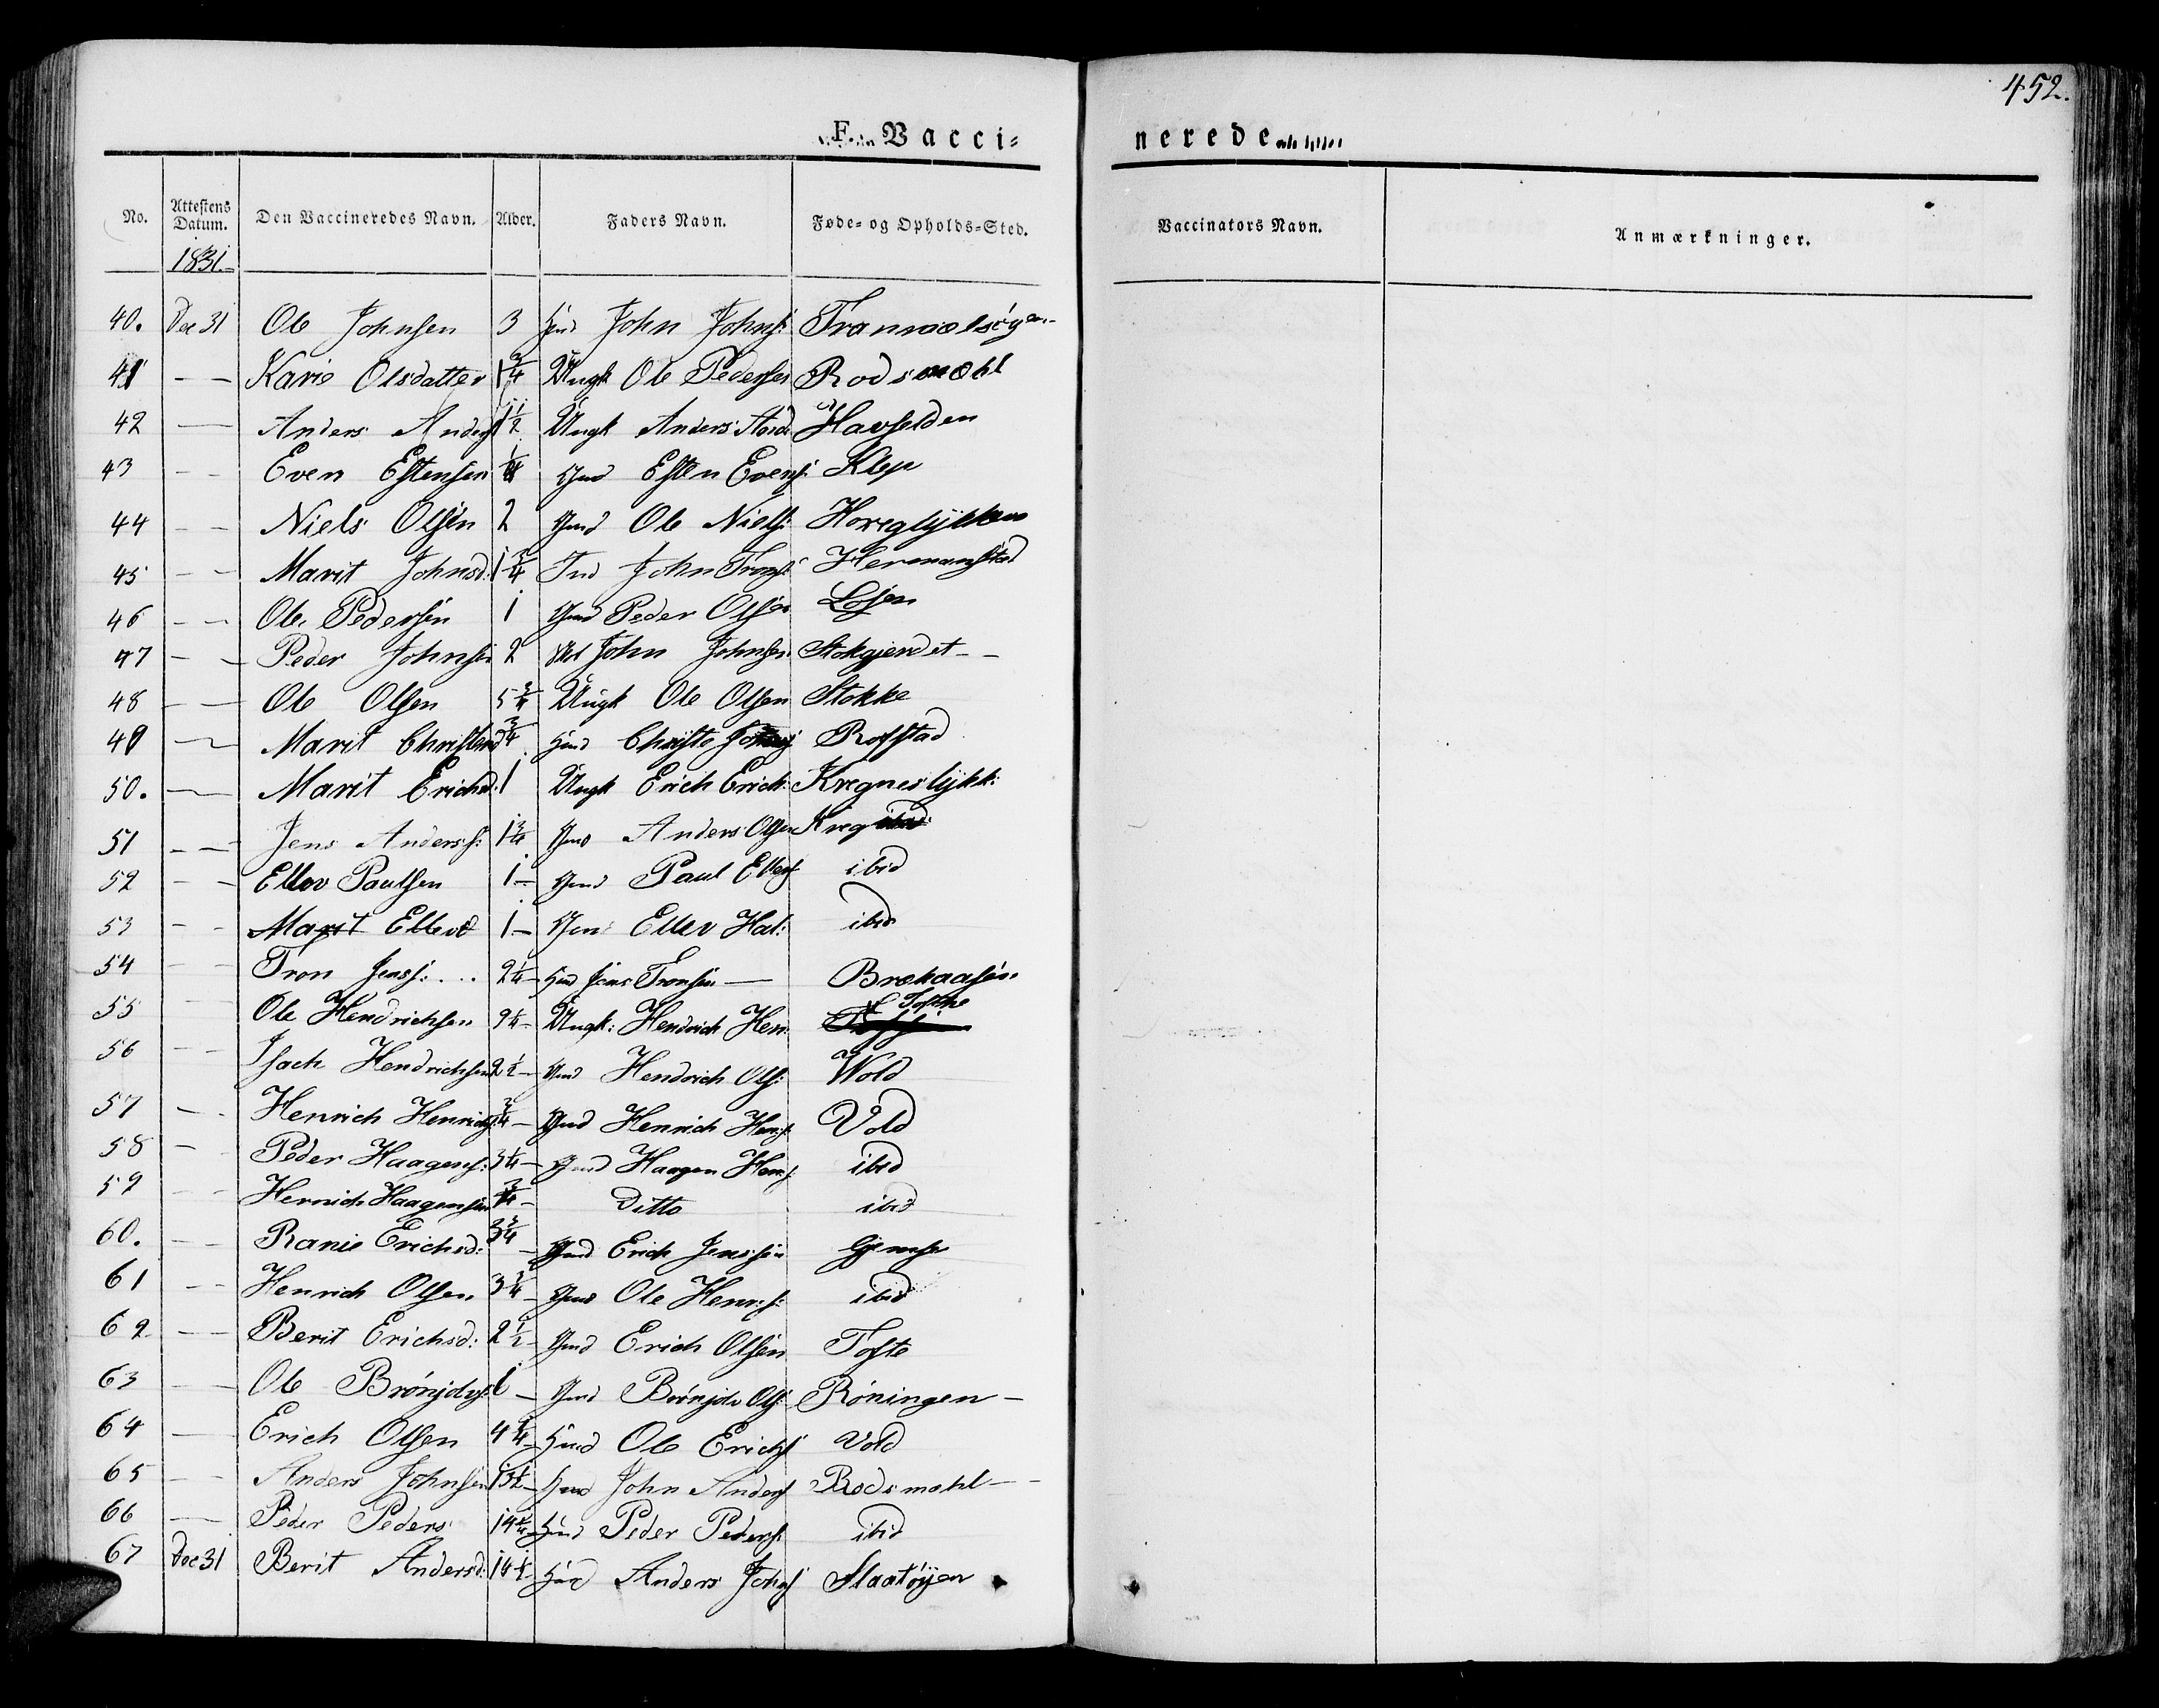 452.
F. Vacci=
nerede
No. Attestens Datum. Den Vaccineredes Navn. Alder. Faders Navn. Føde= og Opholds=Sted. Vaccinators Navn. Anmærkninger.
1831.
40. Dec 31 Ole Johnsen 3 John Johns:
41 — — Karie Olsdatter 1 3/4 Ungk Ole Pedersen Rodsmæhl
42 — Anders Anders 1 1/2 Ungk Anders
43 — — Even Estensen Esten Evens: Klep
44 — — Niels Olsen 2 Ole Niels:
45 — — Marit Johnsd: 1 3/4 Ind John Trons: Hermanstad
46 — — Ole Pedersen 1 Peder Olsen Losen
47 — — Peder Johnsen 2 John Johnsen Stokgjerdet — —
48 — — Ole Olsen 5 3/4 Ungk Ole Olsen Stokke
49 — — Marit 3/4 Christe Rofstad
50. — Marit Erichsd: 1 Ungk Erich Erich: Kregneslykk:
51 — — Jens Anders: 1 3/4 Anders Olsen Kreg
52 — — Ellev Paulsen 1 — Paul Ellefs ibid
53 — — Marit Ellevd 1 — Ellev Hal: ibid
54 — — Tron Jens: . . . 2 1/4 — Jens Tronsen — Brekaasen
55 — Ole Hendrichsen 9 1/4 — Ungk: Hendrich Hen: Tofte
56 — — Isach Hendrichsen 2 1/2 — Hendrich Ols: Wold
57 — . Henrich Henrichs: 3/4 — Henrich Hens: Vold
58 — Peder Haagens: 3 1/4 — Haagen Hens: ibid
59 — — Henrich Haagensen 3/4 — Ditto ibid
60. — — Ranie Erichsd: 3 3/4 — Erich Jenssen Gjemse
61 — — Henrich Olsen 3 3/4 — Ole Henr:s: ibid
62 — — Berit Erichsd: 2 1/2 — Erich Olsen Tofte
63 — — Ole 1 — Ols: Röningen —
64 — Erich Olsen 4 1/4 — Ole Erichs Vold
65 — — Anders Johnsen 13 1/2 — John Anders Rodsmæhl — —
66 — Peder Peders 14 1/4 — Peder Peders: ibid
67 Dec 31 Berit Andersd: 14 1/2 Anders Johns Slaatöyen